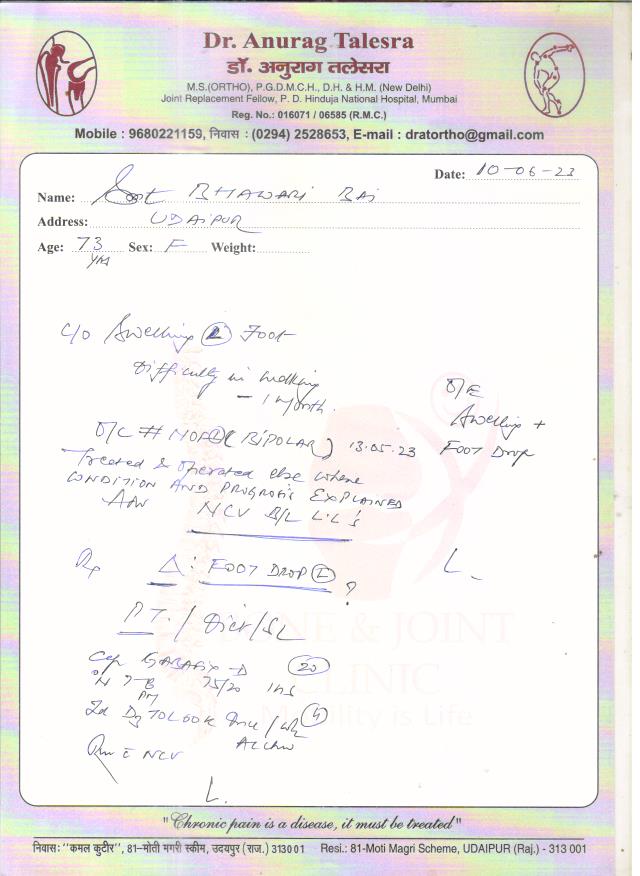 Dr. Anurag Talesra
डॉ. अनुराग तलेसरा
M.S.(ORTHO), P.G.D.M.C.H., D.H. & H.M. (New Delhi)
Joint Replacement Fellow, P. D. Hinduja National Hospital, Mumbai
Reg. No.: 016071 / 06585 (R.M.C.)
Mobile : 9680221159, निवास : (0294) 2528653, E-mail : dratortho@gmail.com
Date: 10-06-23
Name: Smt BHAWARI BAI
Address: UDAIPUR
Age: 73 yrs Sex: F Weight:
C/O Swelling (L) Foot
Difficulty in walking
- 1 month.
O/E
Swelling +
FOOT DROP
O/C # NOF (L) (BIPOLAR) 13.05.23
Treated & operated else where
CONDITION AND PROGNOSIS EXPLAINED
Adv NCV B/L L.L's
Rx Δ: FOOT DROP (L) ?
P.T. / Diet/SL
BONE & JOINT
CLINIC
Mobility is Life
Cap GABAFIX-D (20)
75/20 1HS
once / wk (4)
NCV
"Chronic pain is a disease, it must be treated"
निवास: "कमल कुटीर", 81-मोती मगरी स्कीम, उदयपुर (राज.) 313001 Resi.: 81-Moti Magri Scheme, UDAIPUR (Raj.) - 313 001